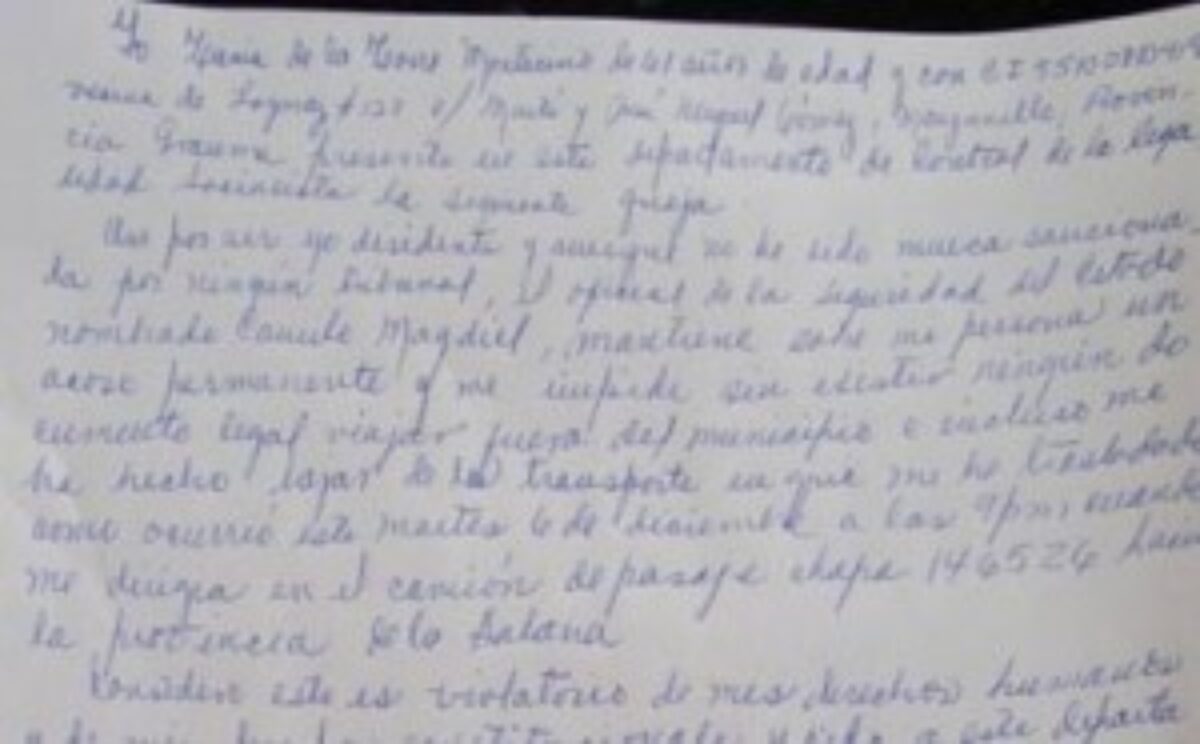 Yo de la Torre de 61 años de edad y con CI
de Lopez # 128 e/ Martí y José Miguel Gómez, Manzanillo, Provin-
cia Granma presento en este departamento de Control de la lega
lidad Socialista la siguiente queja
por ser yo disidente y aunque no he sido nunca sanciona-
da por ningún tribunal, el oficial de la seguridad del estado
nombrado Camilo Magdiel, mantiene sobre mi persona un
acoso permanente y me impide sin existir ningún do
cumento legal viajar fuera del municipio e incluso me
ha hecho bajar de los transporte en que me he trasladado
como ocurrió este martes 6 de diciembre a las 9pm, cuando
me dirigia en el camión de pasaje chapa 146526 hacia
la provincia de la Habana
Considero este es violatorio de mis derechos humanos
y de mis y pido a este departa